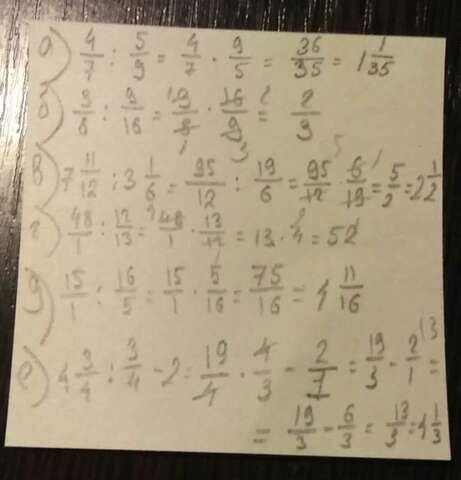 а) 4/7 : 5/9 = 4/7 · 9/5 = 36/35 = 1 1/35
б) 3/8 : 9/16 = 3/8 · 16/9 = 2/3
в) 7 11/12 : 3 1/6 = 95/12 : 19/6 = 95/12 · 6/19 = 5/2 = 2 1/2
г) 48/1 : 12/13 = 48/1 · 13/12 = 13 · 4 = 52
д) 15/1 : 16/5 = 15/1 · 5/16 = 75/16 = 4 11/16
е) 4 3/4 : 3/4 - 2 = 19/4 · 4/3 - 2/1 = 19/3 - 2/1 =
= 19/3 - 6/3 = 13/3 = 4 1/3